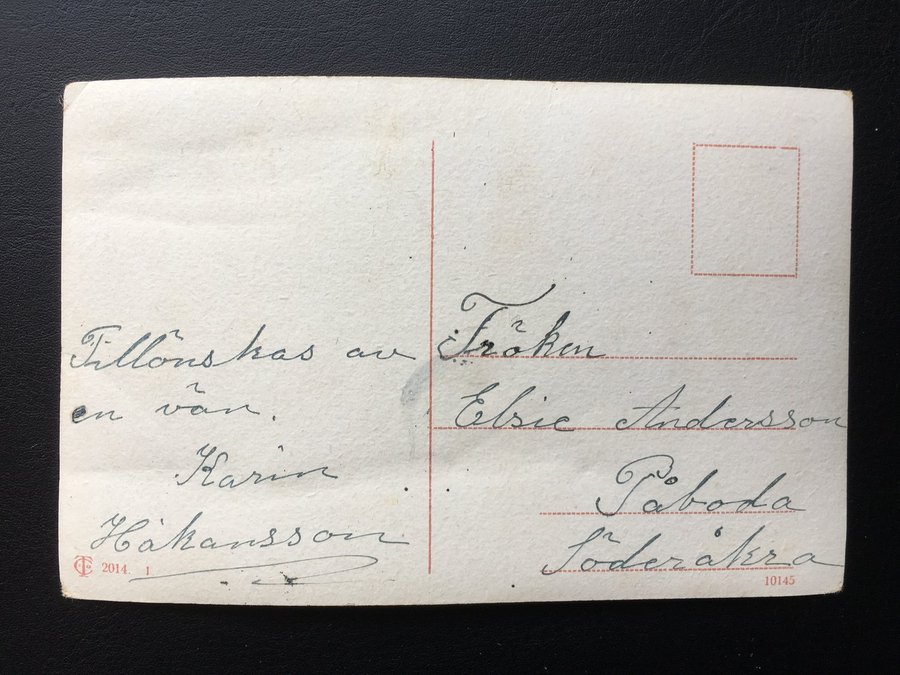 Tillönskas av
en vän.
Karin
Håkansson
2014. 1
Fröken
Elsie Andersson
Påboda
Söderåkra
10145